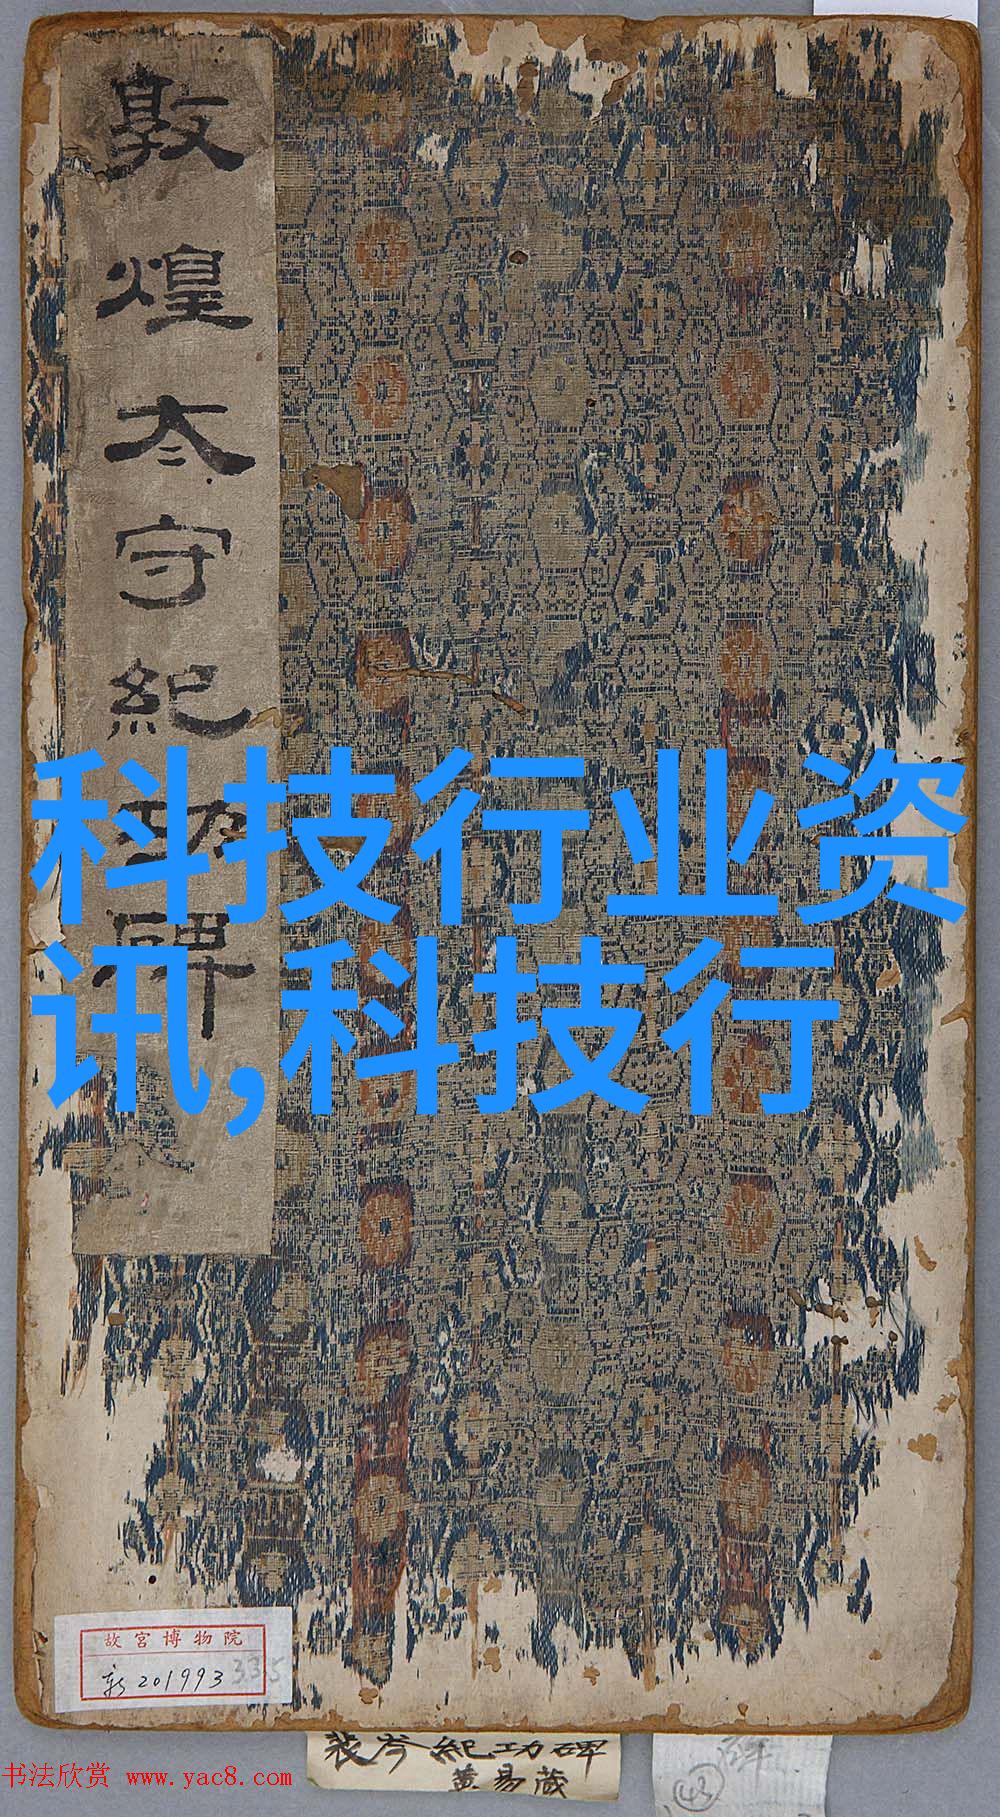 敦煌太守纪功碑
科技行业资
讯,科技行
故宫博物院
新201993
335
裴岑紀功碑
黄易藏
43
书法欣赏 www.yac8.com